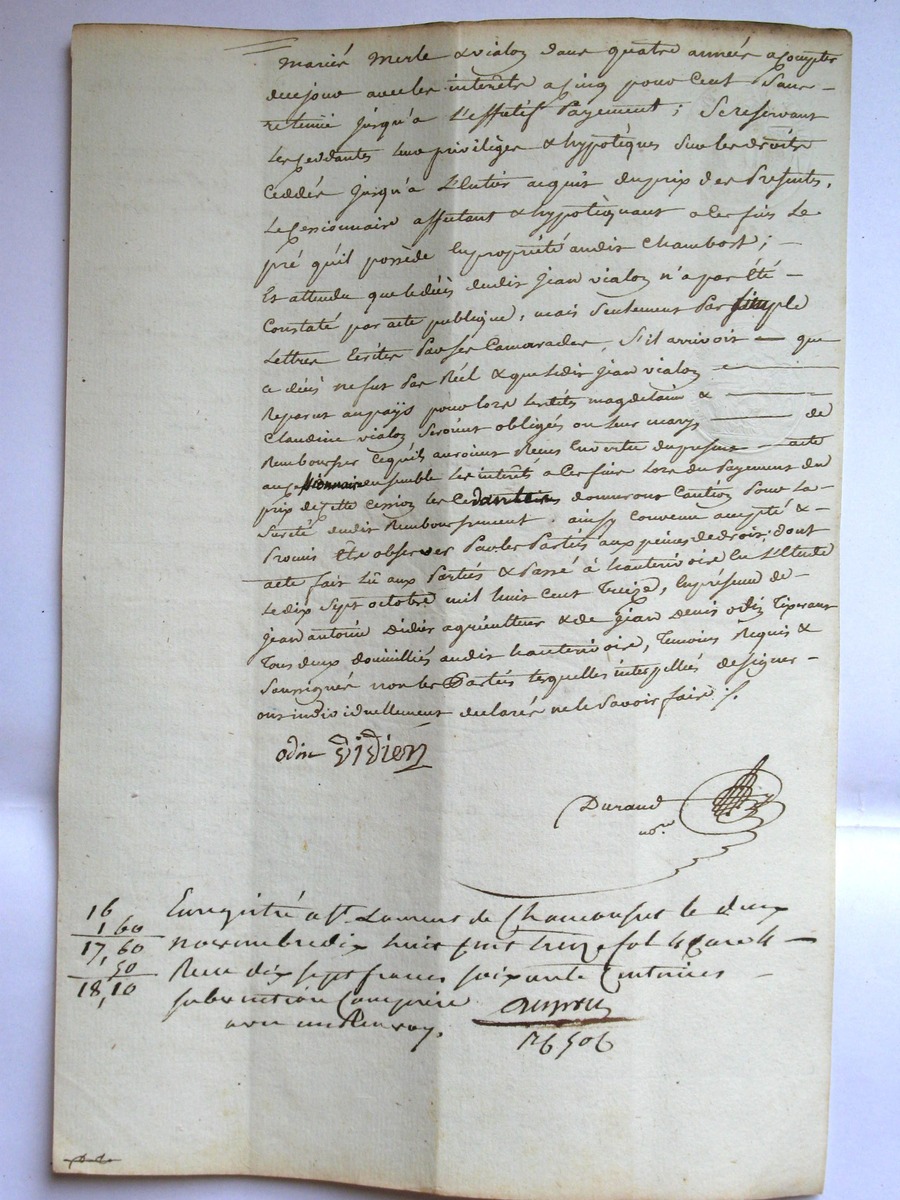 mariés Merle & vialon dans quatre années a Compter
de ce jour avec les intérêts a Cinq pour Cent Sans
retenuë jusqu'a L'effectif Payement ; Se reservant
Les Ceddantes Leur privilèges & hypotèques Sur les droits
Ceddés jusqu'a L'Entier acquit du prix des Présentes,
Le Cessionnaire affectant & hypotèquant a Ces fins Le
pré qu'il possède En propriété audit Chambost ; —
Et attendu que le décès dudit jean vialon n'a pas été —
Constaté par acte publique, mais Seulement Par Simple
Lettres Ecrites Par Ses Camarades, S'il arrivoit — que
ce décès ne fut Pas Réel & que Ledit jean vialon
Reparut au pays pour lors Lesdites magdelaine &
Claudine vialon Seroient obligées ou leur marys — de
Rembourser Ce qu'ils auroient Recus En vertu du présent — acte
au Cessionnaire ensemble Les interêt a Ces fins Lors du Payement du
prix de Cette Cession les Ceddantes donneront Caution Pour La
Sureté dudit Remboursement. ainsy Convenu accepté &
Promis Être observer Par les Parties aux peines de droit ; dont
acte fait Lû aux Parties & Passé à hauterivoire En L'Etude
Le dix Sept octobre mil huit Cent Treize, En présence de
jean antoine Didier agriculteur & de jean Denis odin Tisserant
Tous deux domiciliés audit hauterivoire, Temoins Requis &
Soussignés non les Parties lesquelles interpellées de Signer
ont individuellement declarés ne le Savoir faire ./.
odin Didier
Durand
no.re
16
1,60
17,60
50
18,10
Enregistré a St. Laurent de Chamousset le deux
novembre dix huit Cent treize fol 4 Case 4
Reçu dix Sept francs soixante Centimes
subvention Comprise
avec un Renvoy.
26506